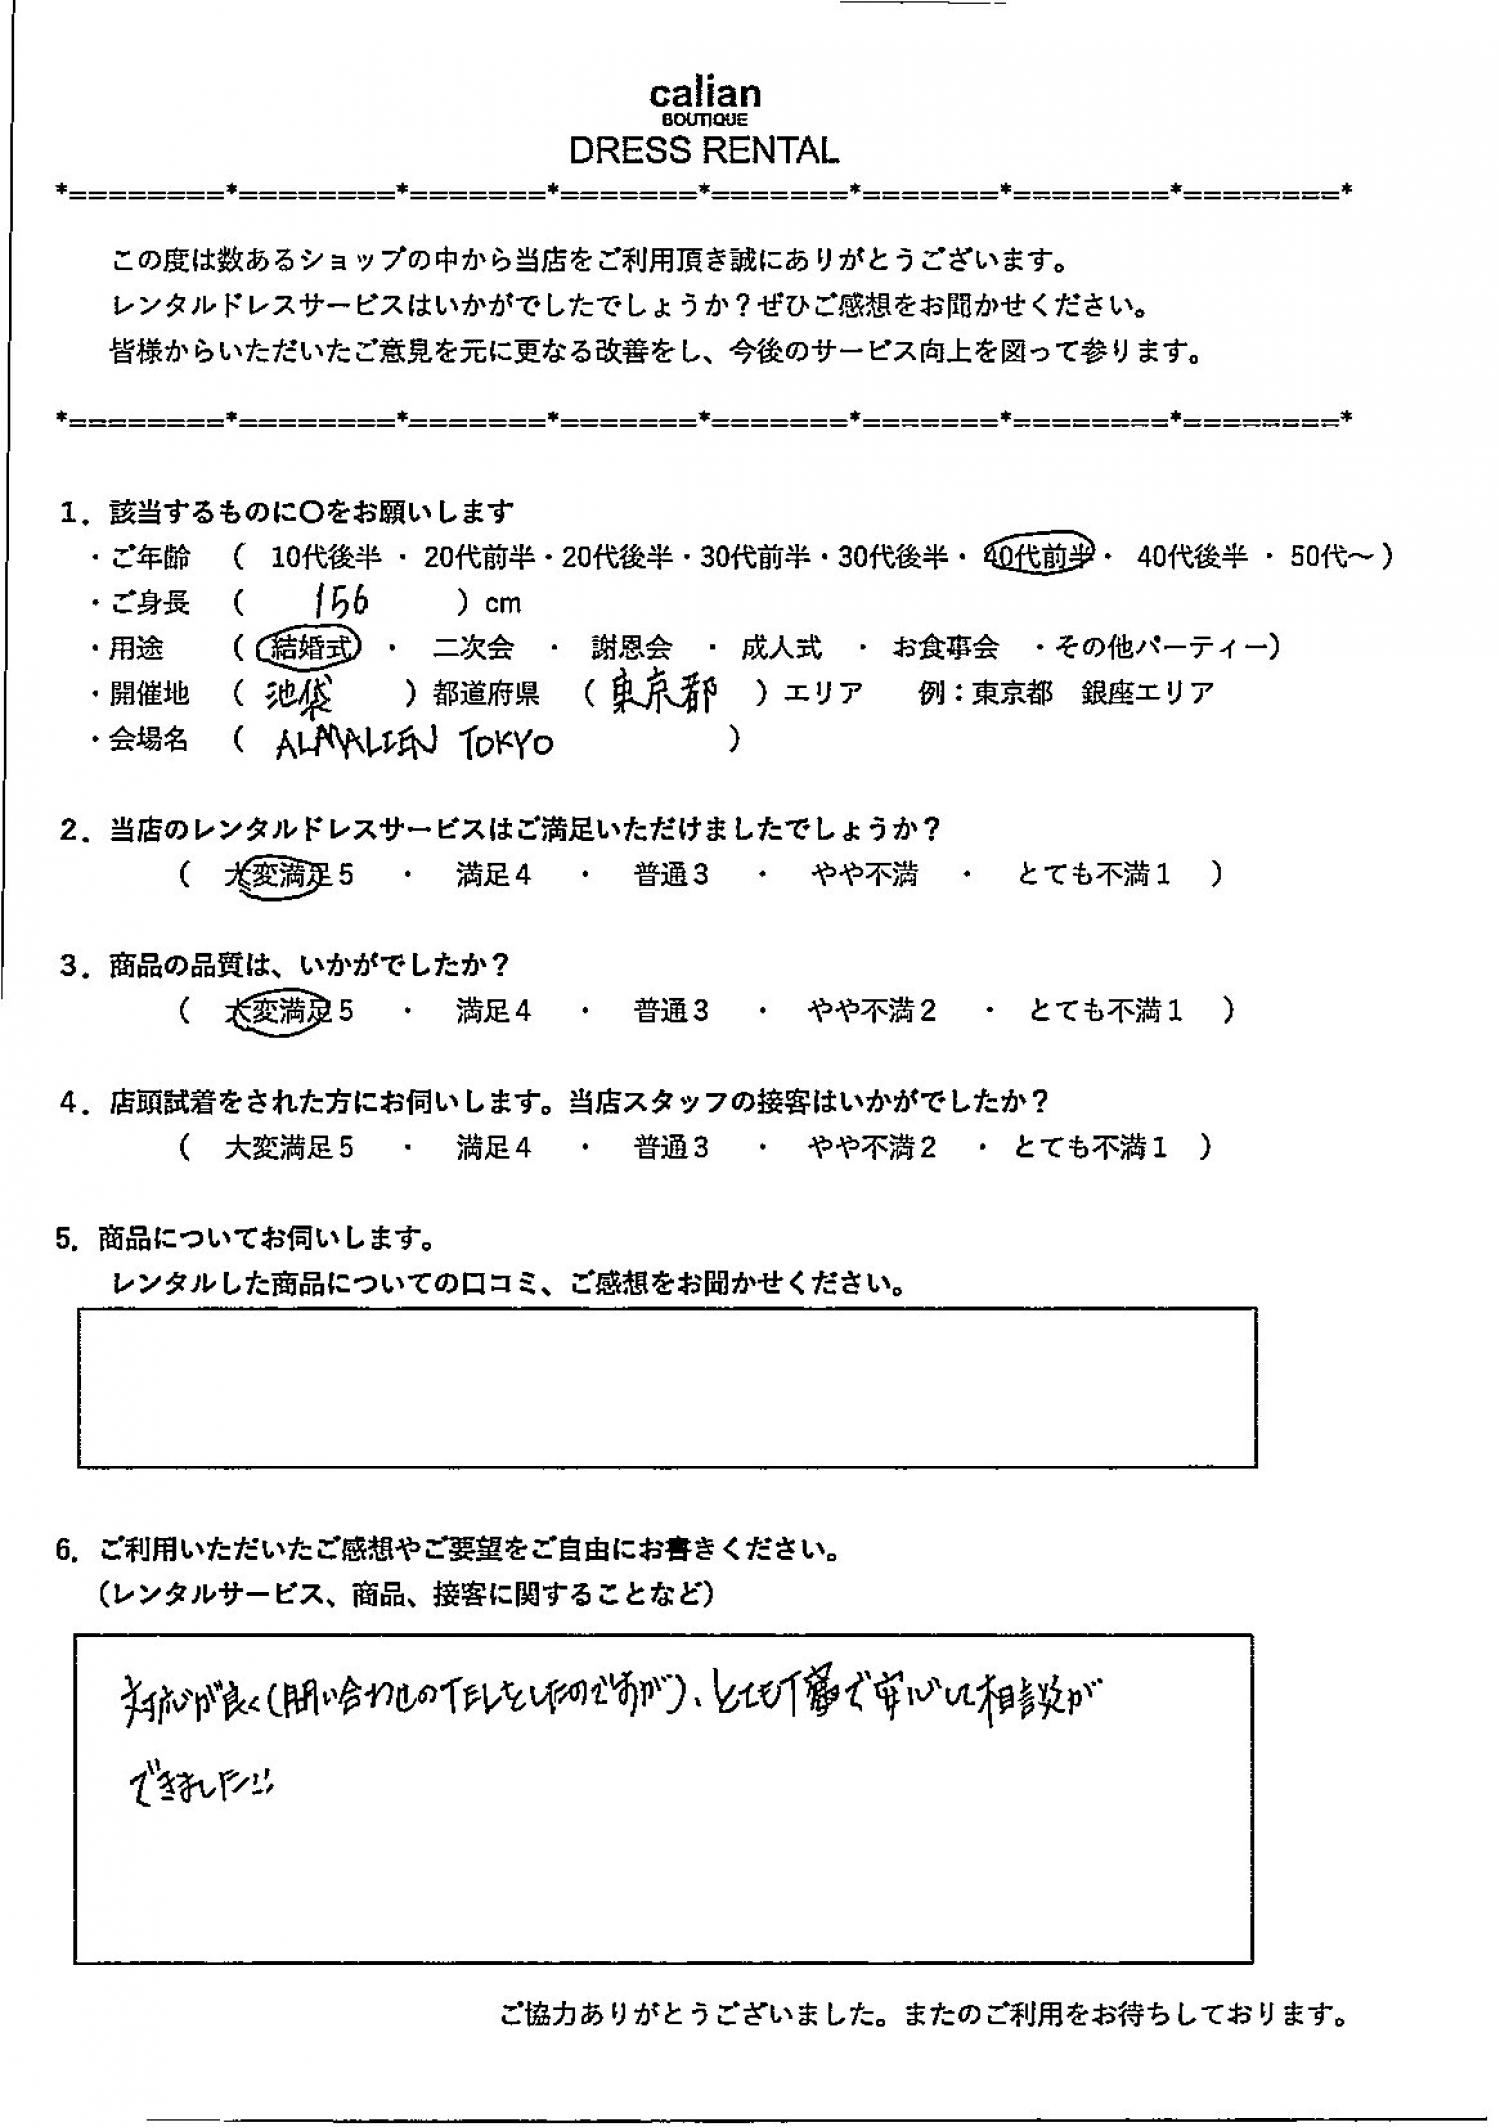 calian
BOUTIQUE
DRESS RENTAL
*========*========*=======*=======*=======*=======*========*========*
この度は数あるショップの中から当店をご利用頂き誠にありがとうございます。
レンタルドレスサービスはいかがでしたでしょうか？ぜひご感想をお聞かせください。
皆様からいただいたご意見を元に更なる改善をし、今後のサービス向上を図って参ります。
*========*========*=======*=======*=======*=======*========*========*
1．該当するものに〇をお願いします
・ご年齢 （ 10代後半 ・ 20代前半・20代後半・30代前半・30代後半・ 40代前半・ 40代後半 ・ 50代～）
・ご身長 （ 156 ）cm
・用途 （ 結婚式 ・ 二次会 ・ 謝恩会 ・ 成人式 ・ お食事会 ・その他パーティー）
・開催地 （ 池袋 ）都道府県 （ 東京都 ）エリア 例：東京都 銀座エリア
・会場名 （ ALMALIEN TOKYO ）
2．当店のレンタルドレスサービスはご満足いただけましたでしょうか？
（ 大変満足5 ・ 満足4 ・ 普通3 ・ やや不満 ・ とても不満1 ）
3．商品の品質は、いかがでしたか？
（ 大変満足5 ・ 満足4 ・ 普通3 ・ やや不満2 ・ とても不満1 ）
4．店頭試着をされた方にお伺いします。当店スタッフの接客はいかがでしたか？
（ 大変満足5 ・ 満足4 ・ 普通3 ・ やや不満2 ・ とても不満1 ）
5．商品についてお伺いします。
レンタルした商品についての口コミ、ご感想をお聞かせください。
6．ご利用いただいたご感想やご要望をご自由にお書きください。
（レンタルサービス、商品、接客に関することなど）
対応が良く(問い合わせのTELをしたのですが)、とても丁寧で安心して相談が
できました!!
ご協力ありがとうございました。またのご利用をお待ちしております。